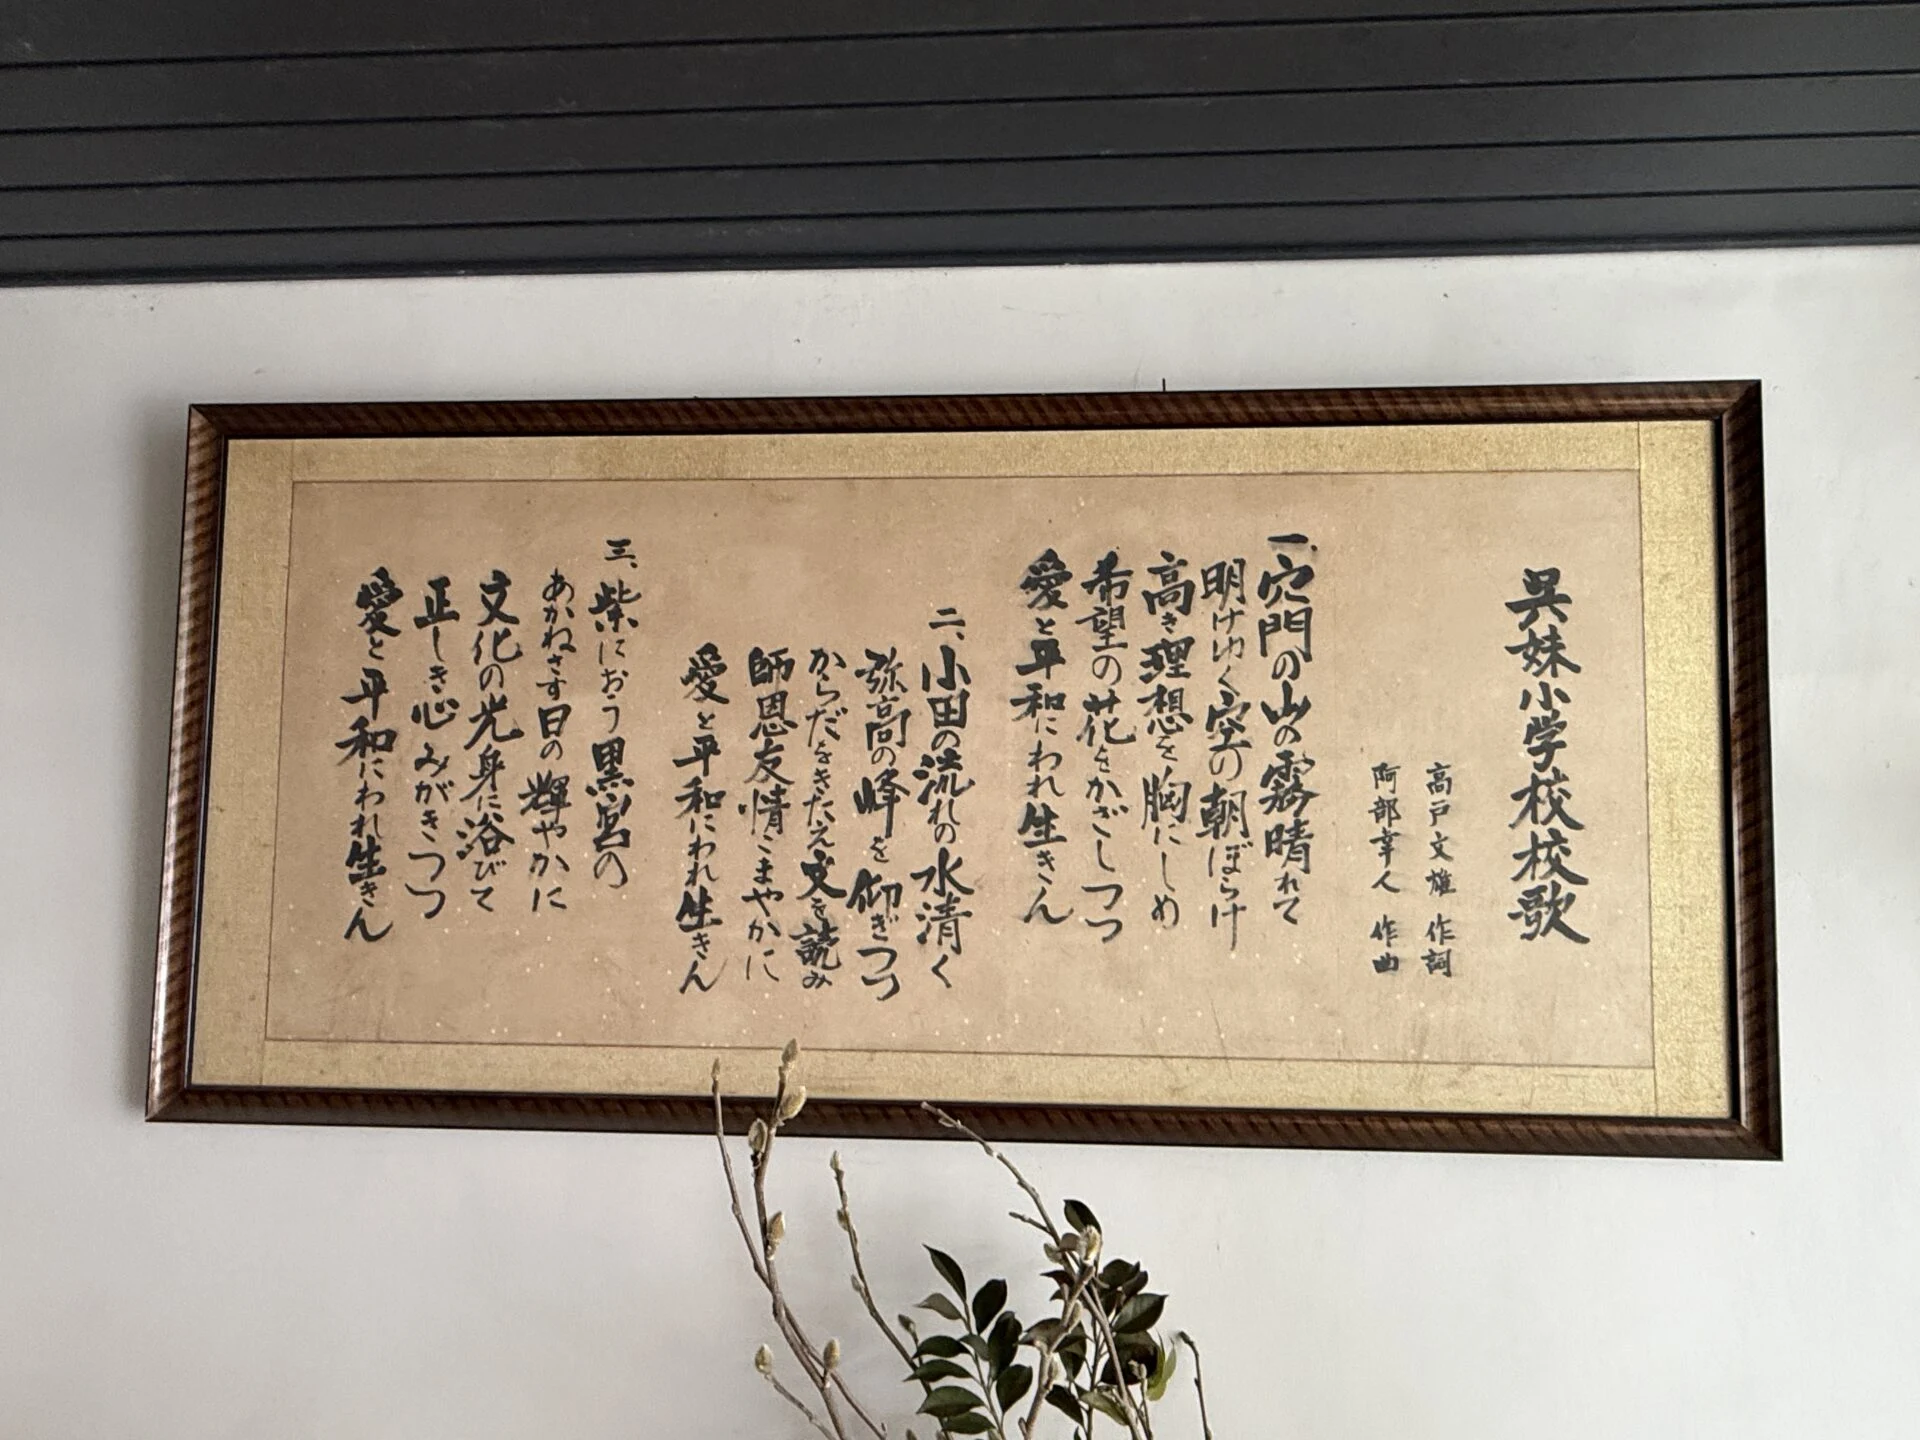 呉妹小学校校歌
高戸文雄 作詞
阿部幸人 作曲
一、穴門の山の霧晴れて
明けゆく空の朝ぼらけ
高き理想を胸にしめ
希望の花をかざしつつ
愛と平和にわれ生きん
二、小田の流れの水清く
弥高の峰を仰ぎつつ
からだをきたえ文を読み
師恩友情こまやかに
愛と平和にわれ生きん
三、紫におう黒宮の
あかねさす日の輝やかに
文化の光身に浴びて
正しき心みがきつつ
愛と平和にわれ生きん